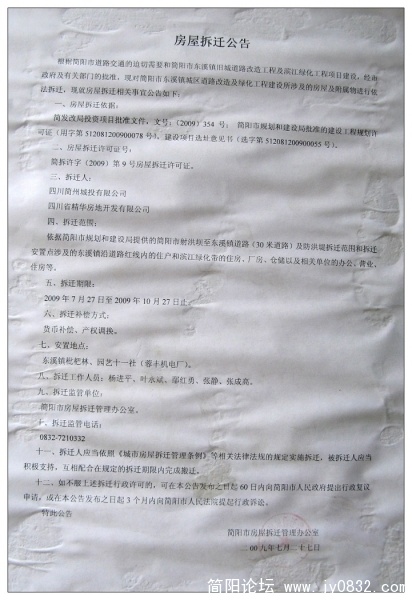 房屋拆迁公告
根据简阳市道路交通的迫切需要和简阳市东溪镇旧城道路改造工程及滨江绿化工程项目建设，经市
政府及有关部门的批准，现对简阳市东溪镇城区道路改造及绿化工程建设所涉及的房屋及附属物进行依
法拆迁，现就房屋拆迁相关事宜公告如下：
一、房屋拆迁依据：
简发改局投资项目批准文件，文号：（2009）354 号； 简阳市规划和建设局批准的建设工程规划许
可证（用字第 512081200900078 号），建设项目选址意见书（选字第 512081200900055 号）。
二、房屋拆迁许可证号：
简拆许字（2009）第 9 号房屋拆迁许可证。
三、拆迁人：
四川简州城投有限公司
四川省精华房地开发有限公司
四、拆迁范围：
依据简阳市规划和建设局提供的简阳市射洪坝至东溪镇道路（30 米道路）及防洪堤拆迁范围和拆迁
安置点涉及的东溪镇沿道路红线内的住户和滨江绿化带的住房、厂房、仓储以及相关单位的办公、营业、
住房等。
五、拆迁期限：
2009 年 7 月 27 日至 2009 年 10 月 27 日止。
六、拆迁补偿方式：
货币补偿、产权调换。
七、安置地点：
东溪镇枇杷林、园艺十一社（蓉丰机电厂）。
八、拆迁工作人员：杨进平、叶永斌、鄢红勇、张静、张成高。
九、拆迁监管单位：
简阳市房屋拆迁管理办公室。
十、拆迁监管电话：
0832-7210332
十一、拆迁人应当依照《城市房屋拆迁管理条例》等相关法律法规的规定实施拆迁，被拆迁人应当
积极支持，互相配合在规定的拆迁期限内完成搬迁。
十二、如不服上述拆迁行政许可的，可在本公告发布之日起 60 日内向简阳市人民政府提出行政复议
申请，或在本公告发布之日起 3 个月内向简阳市人民法院提起行政诉讼。
特此公告
简阳市房屋拆迁管理办公室
00九年七月二十七日
简阳论坛 www.jy0832.com